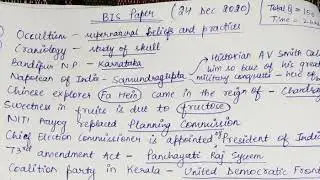 BIS Paper (24 Dec 2020)
Total Q = 150
Time = 2
Occultism - supernatural beliefs and practices
Craniology - study of skull
Bandipur N.P - Karnataka
Historian A V Smith
Napolean of India - Samundragupta
him so bcuz of his great
military conquests
Chinese explorer Fa Hein came in the reign of -
Sweetness in fruits is due to fructose
NITI Aayog replaced Planning Commission
Chief Election Commissioner is appointed by President of India
73rd amendment Act - Panchayati Raj System
Coalition party in Kerala - United Democratic Front